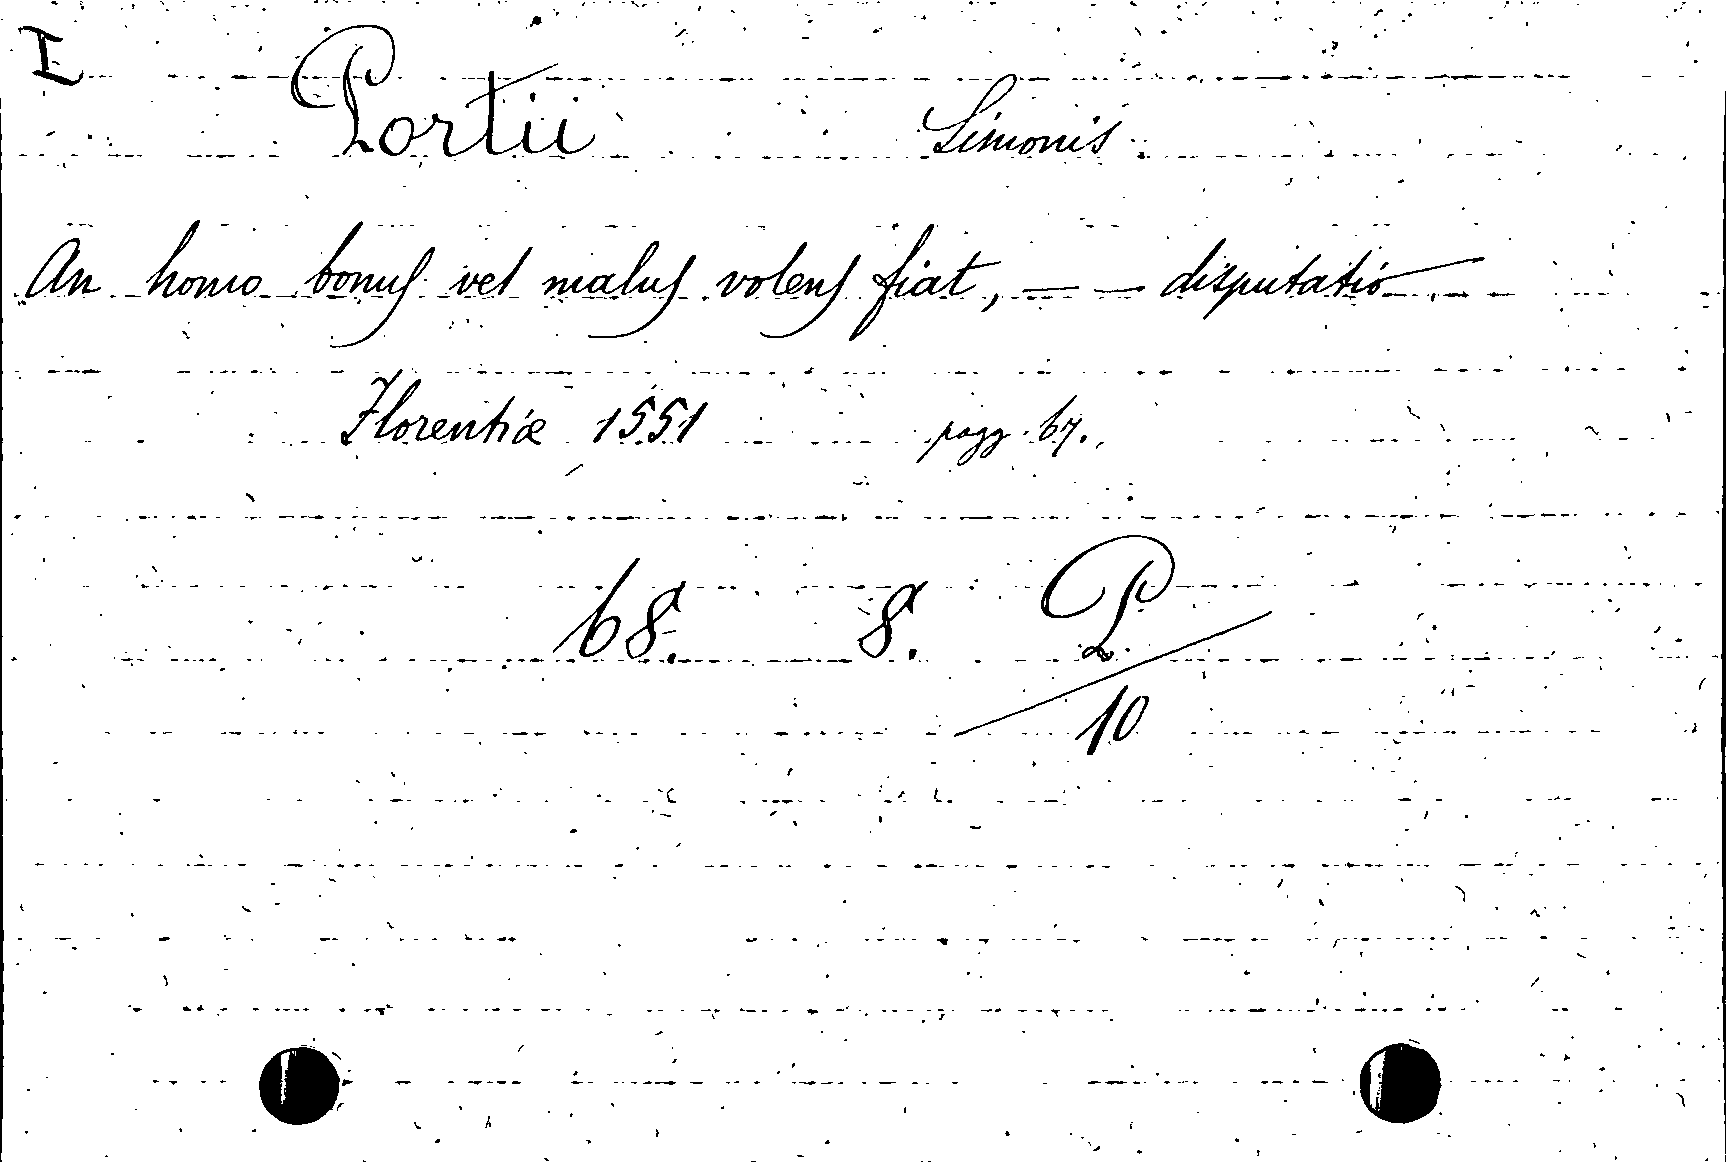 I
Portii Simonis
An homo bonus vel malus volens fiat, — — disputatio
Florentiæ 1551 pagg. 67.
68. 8. P.
10